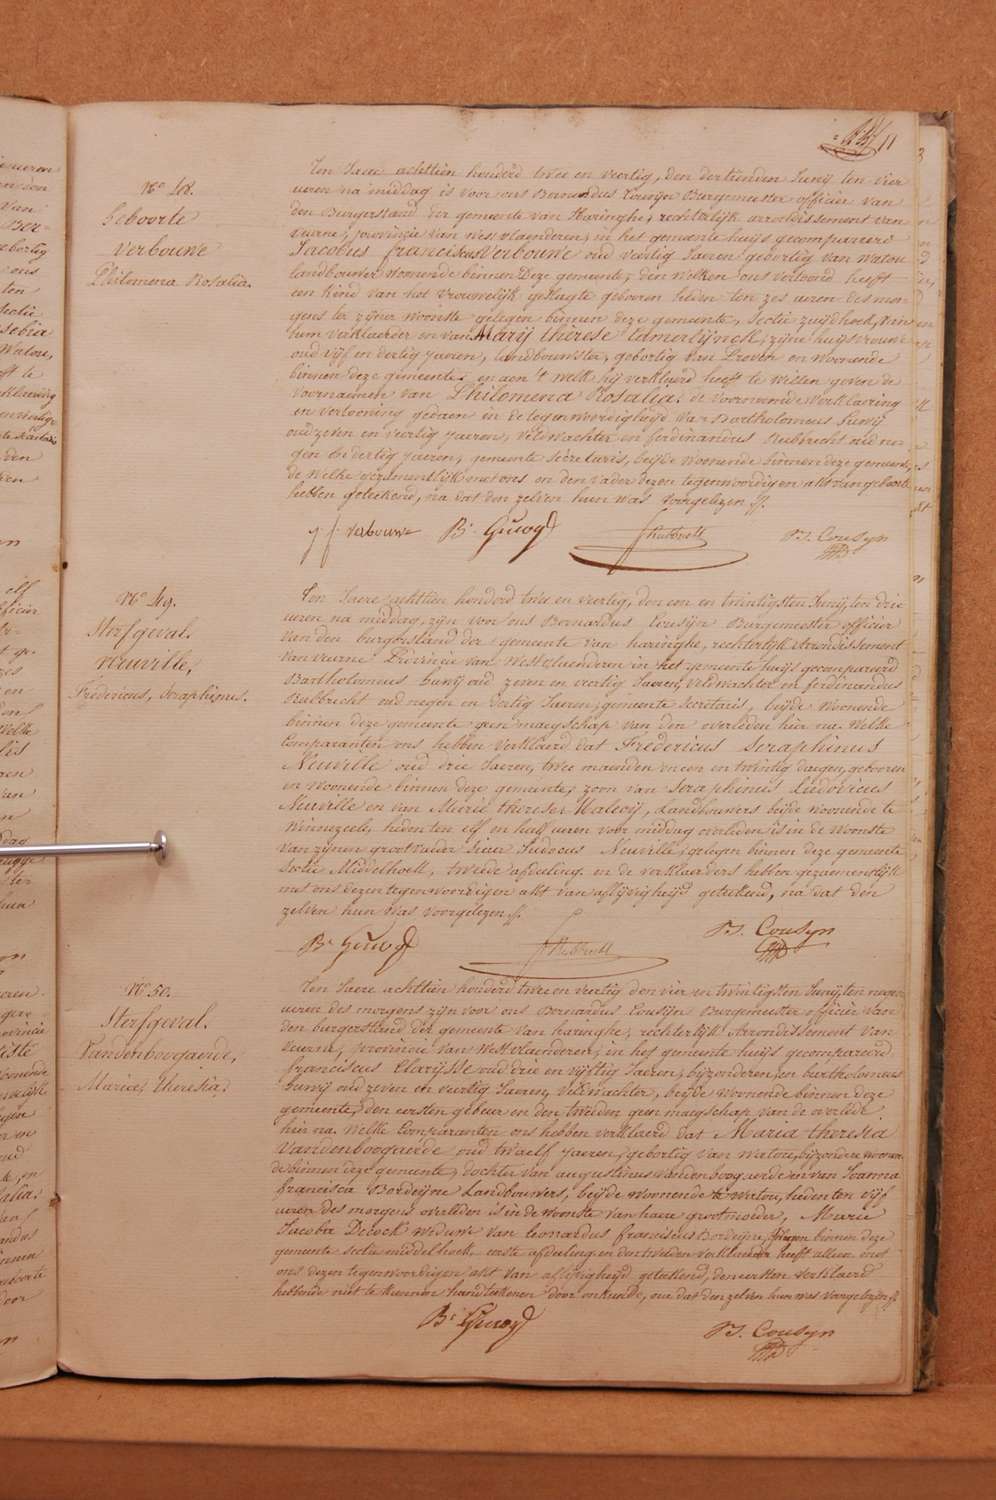 11
N.o 48.
Geboorte
Verbouwe
Philomena Rosalia.
Ten Jaere achttien honderd twee en veertig, den dertienden Junij ten vier
ueren na middag is voor ons Bernardus Cousijn Burgemeester officier van
den Burgerstand der gemeente van Haringhe, rechterlijk arrondissement van
veurne, provincie van westvlaenderen, in het gemeente huijs gecompareerd
Jacobus franciscus Verbouwe oud veertig Jaeren geboortig van watou
landbouwer woonende binnen deze gemeente, den welken ons vertoond heeft
een kind van het vrouwelijk geslagte geboren heden ten zes ueren des mor-
gens ter zijner woonste gelegen binnen deze gemeente, sectie zuijdhoek, van
hem verklaerder en van Marij therese Camerlijnck, zijne huijsvrouwe
oud vijf en dertig Jaeren, landbouwster, geboortig van Proven en woonende
binnen deze gemeente, en aen 't welk hij verklaerd heeft te willen geven de
voornaemen van Philomena Rosalia. de voornoemde verklaering
en vertooning gedaen in de tegenwoordigheijd van Bartholomeus
oud zeven en veertig Jaeren, veldwachter en ferdinandus Rubbrecht oud ne-
gen en dertig Jaeren, gemeente secretaris, beijde woonende binnen deze gemeente,
de welke gezamentlijk met ons en den vader dezen tegenwoordigen akt van geboorte
hebben geteekend, na dat den zelven hun was voorgelezen
j f verbouwe B. F Rubbrecht B. Cousyn
N.o 49.
Sterfgeval.
Neuville,
Fredericus, Seraphinus.
Ten Jaere achttien honderd twee en veertig, den een en twintigsten Junij, ten drie
ueren na middag, zijn voor ons Bernardus Cousijn Burgemeester officier
van den burgerstand der gemeente van haringhe, rechterlijk arrondissement
van veurne Provincie van Westvlaenderen in het gemeente huijs gecompareerd
Bartholomeus oud zeven en veertig Jaeren, veldwachter en ferdinandus
Rubbrecht oud negen en dertig Jaeren, gemeente secretaris, beijde woonende
binnen deze gemeente geen maegschap van den overleden hier na. Welke
Comparanten ons hebben verklaerd dat Fredericus Seraphinus
Neuville oud drie Jaeren, twee maenden en een en twintig daegen, geboren
en woonende binnen deze gemeente, zoon van Seraphinus Ludovicus
Neuville en van Marie therese Malevij, Landbouwers beijde woonende te
Winnezeele, heden ten elf en half ueren voor middag overleden is in de woonste
van zijnen grootvader sieur Judocus Neuville, gelegen binnen deze gemeente
sectie Middelhoek, tweede afdeeling. en de verklaerders hebben gezaementlijk
met ons dezen tegenwoordigen akt van aflijvigheijd geteekend, na dat den
zelven hun was voorgelezen
B. F Rubbrecht B. Cousyn
N.o 50.
Sterfgeval.
Vandenboogaerde,
Marie, theresia.
Ten Jaere achttien honderd twee en veertig den vier en twintigsten Junij, ten negen
ueren des morgens zijn voor ons Bernardus Cousijn Burgemeester officier van
den burgerstand der gemeente van haringhe, rechterlijk Arrondissement van
veurne, provincie van Westvlaenderen, in het gemeente huijs gecompareerd
franciscus Clarysse oud drie en vijftig Jaeren, bijzonderen, en bartholomeus
oud zeven en veertig Jaeren, Veldwachter, beijde woonende binnen deze
gemeente, den eersten gebeur en den tweeden geen maegschap van de overlede
hier na. Welke Comparanten ons hebben verklaerd dat Maria theresia
Vandenboogaerde oud twaelf Jaeren, geboortig van Watou, bijzondere woonen-
de binnen deze gemeente, dochter van augustinus vandenboogaerde en van Joanna
francisca Bordeijne Landbouwers, beijde woonende te Watou, heden ten vijf
ueren des morgens overleden is in de woonste van haere grootmoeder, Marie
Jacoba Decock weduwe van leonardus franciscus Bordeijne, gelegen binnen deze
gemeente sectie middelhoek eerste afdeeling. en den tweeden verklaerder heeft alleen met
ons dezen tegenwoordigen akt van aflijvigheijd geteekend, den eersten verklaerd
hebbende niet te kunnen handteekenen door onkunde, na dat den zelven hun was voorgelezen
B. B. Cousyn